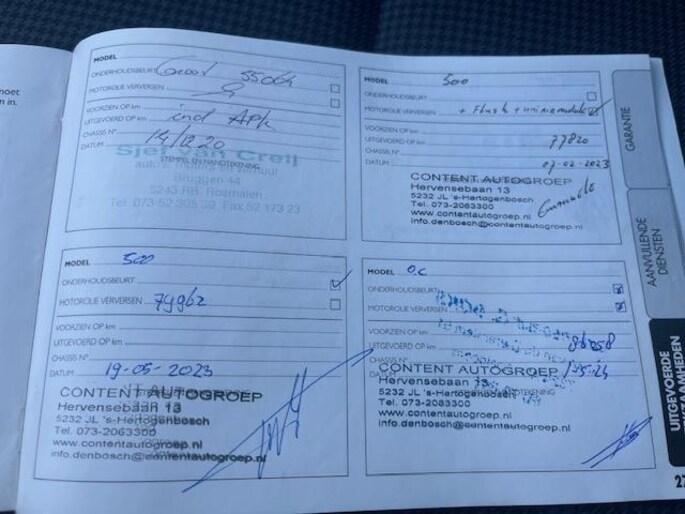 noet
n in.
MODEL
ONDERHOUDSBEURT Groot 55064
MOTOROLIE VERVERSEN
VOORZIEN OP km
UITGEVOERD OP km incl APK
CHASSIS N°
DATUM 14/12 20
Sjef van Creij
STEMPEL EN HANDTEKENING
Bruggen 44
5243 RB Rosmalen
Tel. 073-52 305 39 Fax 52 173 23
MODEL 500
ONDERHOUDSBEURT
MOTOROLIE VERVERSEN + Flush +
VOORZIEN OP km
UITGEVOERD OP km 77820
CHASSIS N°
DATUM 07-02-2023
CONTENT AUTOGROEP
Hervensebaan 13
5232 JL 's-Hertogenbosch
Tel. 073-2063300
www.contentautogroep.nl
info.denbosch@contentautogroep.nl
MODEL 500
ONDERHOUDSBEURT
MOTOROLIE VERVERSEN 79962
VOORZIEN OP km
UITGEVOERD OP km
CHASSIS N°
DATUM 19-05-2023
CONTENT AUTOGROEP
Hervensebaan 13
5232 JL 's-Hertogenbosch
Tel. 073-2063300
www.contentautogroep.nl
info.denbosch@contentautogroep.nl
MODEL O.C
ONDERHOUDSBEURT
MOTOROLIE VERVERSEN
VOORZIEN OP km
UITGEVOERD OP km
CHASSIS N°
DATUM
CONTENT AUTOGROEP
Hervensebaan 13
5232 JL 's-Hertogenbosch
Tel. 073-2063300
www.contentautogroep.nl
info.denbosch@contentautogroep.nl
GARANTIE
AANVULLENDE
DIENSTEN
UITGEVOERDE
27